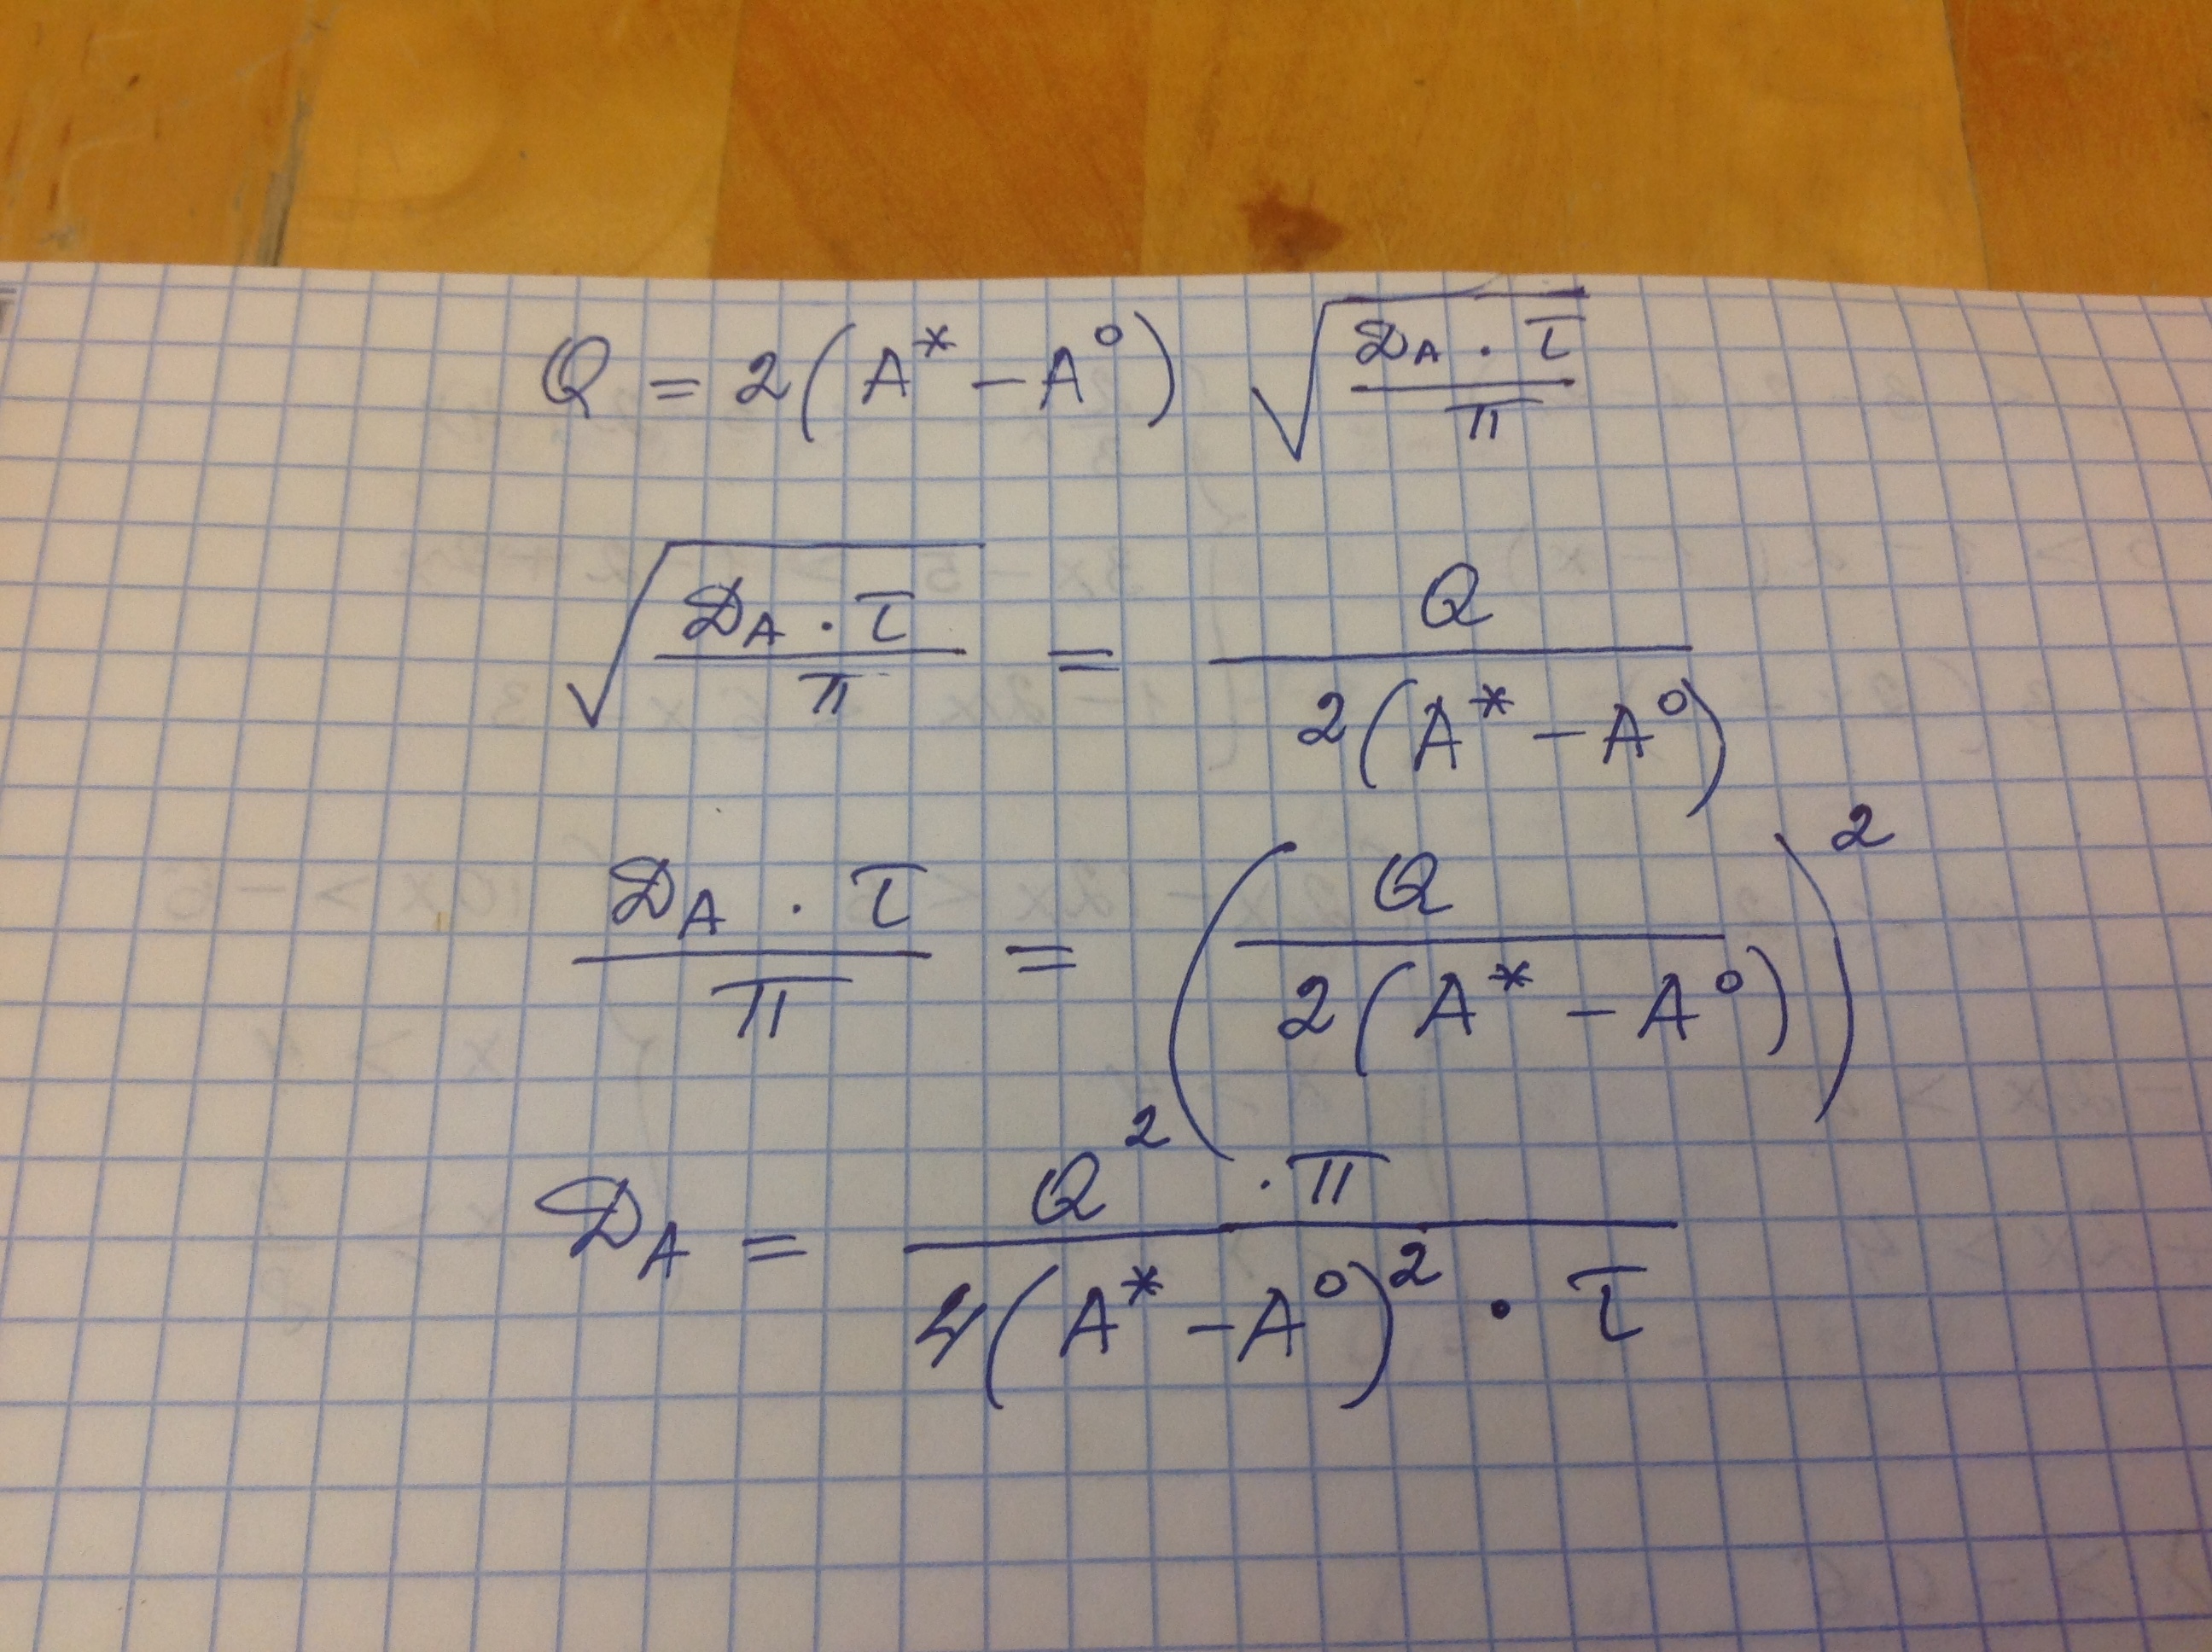 Q = 2(A* − A⁰) √(D_A · τ / π)
√(D_A · τ / π) = Q / 2(A* − A⁰)
D_A · τ / π = (Q / 2(A* − A⁰))²
D_A = Q² · π / 4(A* − A⁰)² · τ